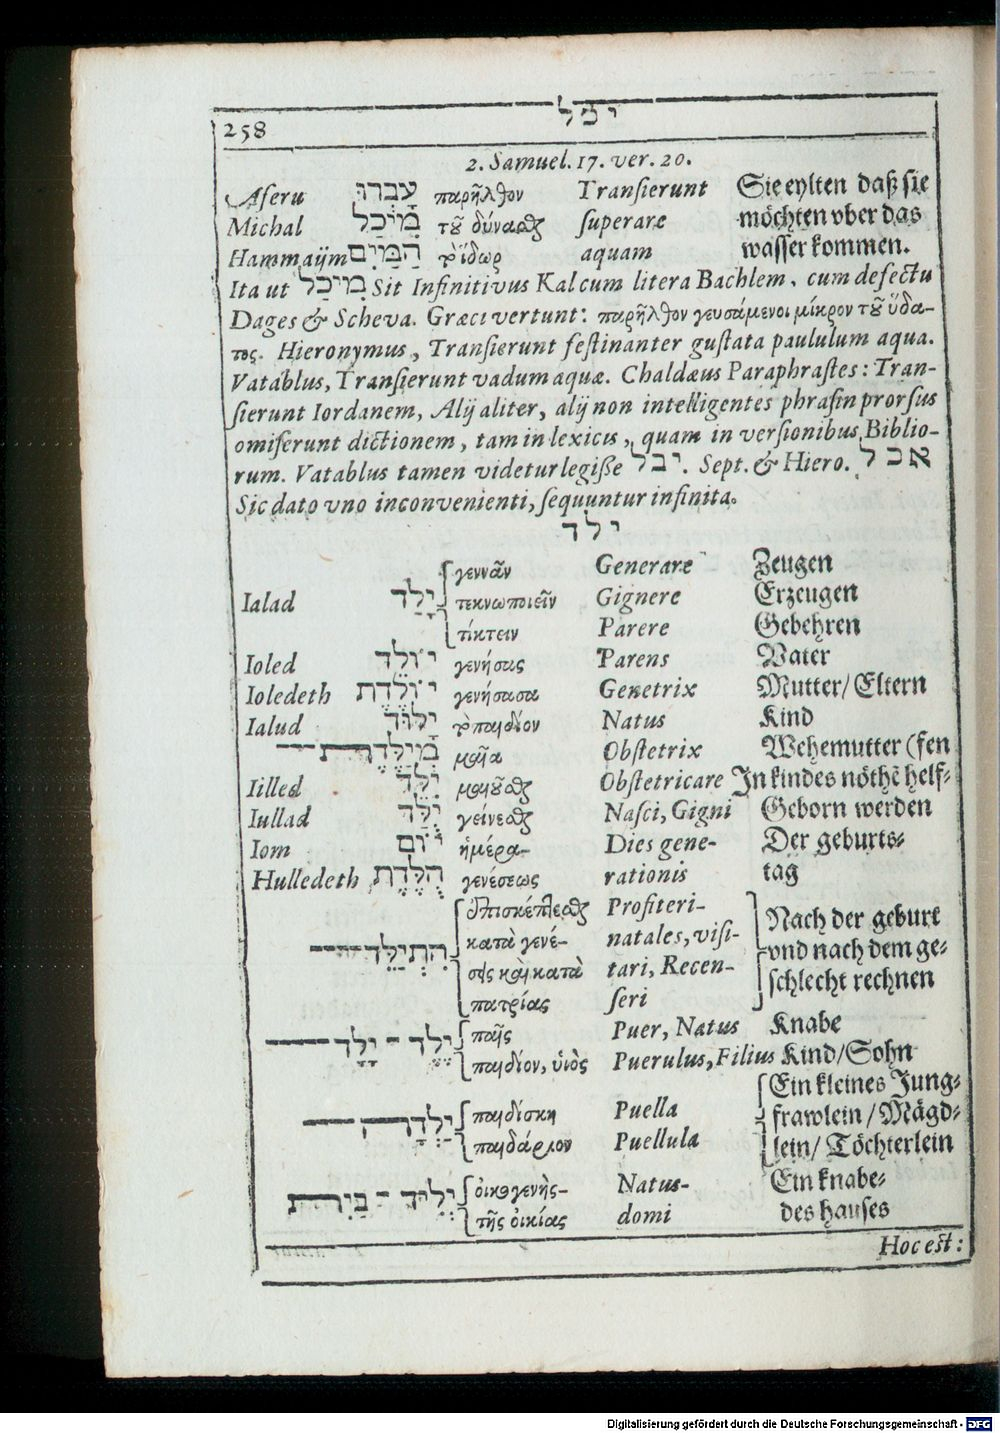 258 יכל
2. Samuel. 17. ver. 20.
Aſeru עָבְרוּ παρῆλθον Tranſierunt Sie eylten daß ſie
Michal מִיכַל τοῦ δύναϑζ ſuperare möchten vber das
Hammaijm הַמַּיִם ὕδωρ aquam waſſer kommen.
Ita ut מִיכַל Sit Infinitivus Kal cum litera Bachlem, cum defectu
Dages & Scheva. Græci vertunt: παρῆλθον γευσάμενοι μίκρον τοῦ ὕδα-
τος. Hieronymus, Tranſierunt feſtinanter guſtata paululum aqua.
Vatablus, Tranſierunt vadum aquæ. Chaldæus Paraphraſtes: Tran-
ſierunt Iordanem, Alij aliter, alij non intelligentes phraſin prorſus
omiſerunt dictionem, tam in lexicis, quam in verſionibus Biblio-
rum. Vatablus tamen videtur legiſſe יבל. Sept. & Hiero. אכל
Sic dato uno inconvenienti, ſequuntur infinita.
ילד
γεννᾶν Generare Zeugen
Ialad יָלַד τεκνωποιεῖν Gignere Erzeugen
τίκτειν Parere Gebehren
Ioled יוֹלֵד γενήσας Parens Vater
Ioledeth יוֹלֶדֶת γενήσασα Genetrix Mutter/ Eltern
Ialud יָלוּד παιδίον Natus Kind
מְיַלֶּדֶת μαῖα Obſtetrix Wehemutter (fen
Iilled יִלֵּד μαιοῦϑζ Obſtetricare In kindes nöthē helf-
Iullad יֻלַּד γείνεϑζ Naſci, Gigni Geborn werden
Iom יוֹם ἡμέρα- Dies gene- Der geburts-
Hulledeth הֻלֶּדֶת γενέσεως rationis tag
ἐπισκέπτεϑζ Profiteri- Nach der geburt
הִתְיַלֵּד κατὰ γενέ- natales, viſi- vnd nach dem ge-
σεις καὶ κατὰ tari, Recen- ſchlecht rechnen
πατρίας ſeri
יֶלֶד - יָלָד παῖς Puer, Natus Knabe
παιδίον, υἱὸς Puerulus, Filius Kind/ Sohn
Ein kleines Jung-
יַלְדָּה παιδίσκη Puella frawlein / Mägd-
παιδάριον Puellula lein/ Töchterlein
יְלִיד - בַּיִת οἰκογενὴς- Natus- Ein knabe-
τῆς οἰκίας domi des hauſes
Hoc eſt:
Digitalisierung gefördert durch die Deutsche Forschungsgemeinschaft - DFG